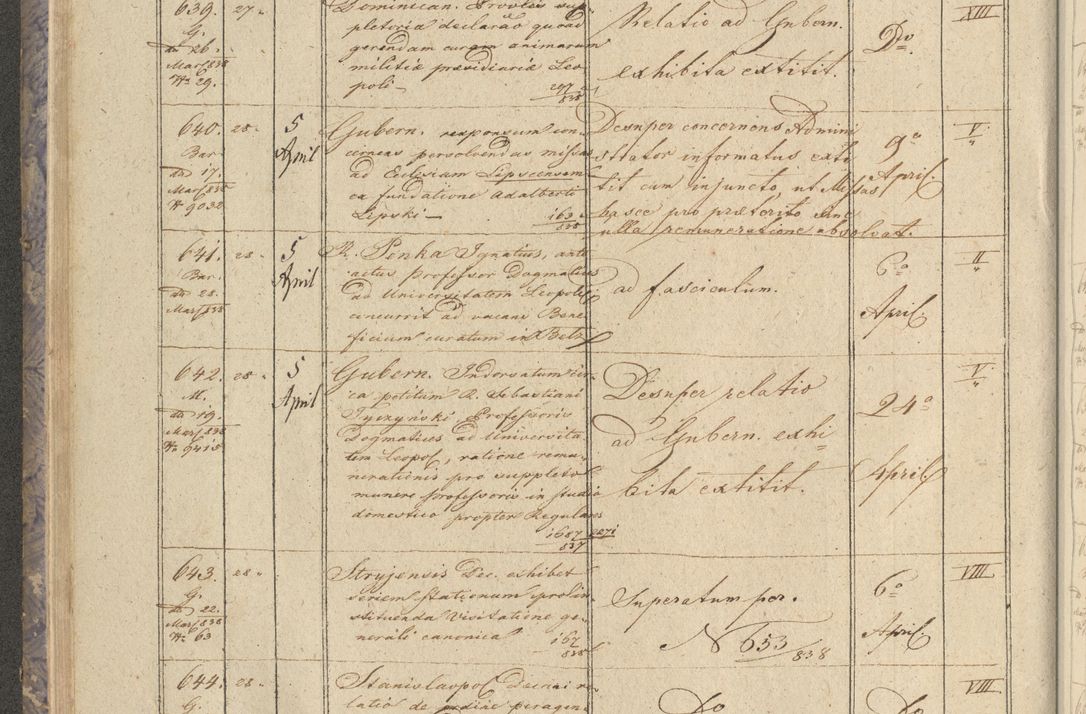 639. 27. Dominican. Provlis sup-
G. pletoria declarão quoad
dto 26. gerendam curam animarum
Mart 838 militiæ præsidiariæ Leo-
No 29. poli —
297/838
Relatio ad Gubern.
exhibita extitit.
Do.
XIII
640. 28. 5 April
Bar.
dto 17.
Mart 838
No 9032
Gubern. responsum con-
cernens persolvendas missas
ad Ecclesiam Lipscensem
ea fundatione Adalberti
Lipski —
163/838
Desuper concernens Admini
strator informatus exti
tit cum injuncto, ut Missas
hasce pro præterito sine
ulla remuneratione absolvat.
9a
April.
V
641. 28. 5 April
Bar.
dto 28.
Mart 838
R. Penka Ignatius, ant
actus professor Dogmatices
ad Universitatem Leopol.
concurrit ad vacans Bene
ficium curatum in Betz
ad fasciculum.
6a
April.
II
642. 28. 5 April
M.
dto 19.
Mart 838
No 9415
Gubern. Indorsatum cir-
ca petitum R. Sebastiani
Tyczyński Professoris
Dogmatices ad Universita
tem Leopol, ratione remu-
nerationis pro suppleto
munere professoris in studio
domestico propter Regulares
1687/837 2271
Desuper relatio
ad Gubern. exhi
bita extitit.
24a
April.
V
643. 28.
G.
dto 22.
Mart 838
No 63
Stryjensis Dec. exhibet
seriem stationum pro in
stituenda Visitatione ge-
nerali canonica
167/838
Superatum per.
N 653/838
6a
April.
VIII
644. 28.
G.
Stanislaopol Decani re-
latio de peragen
Do
Do
VIII